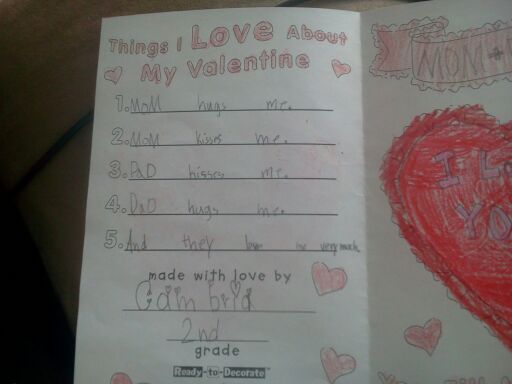 Things I Love About
My Valentine
1. MOM hugs me.
2. MOM kisses me.
3. DAD kisses me.
4. DaD hugs me.
5. And they love me very much.
made with love by
Cambria
2nd
grade
Ready-to-Decorate™
MOM +
I Lo
YO